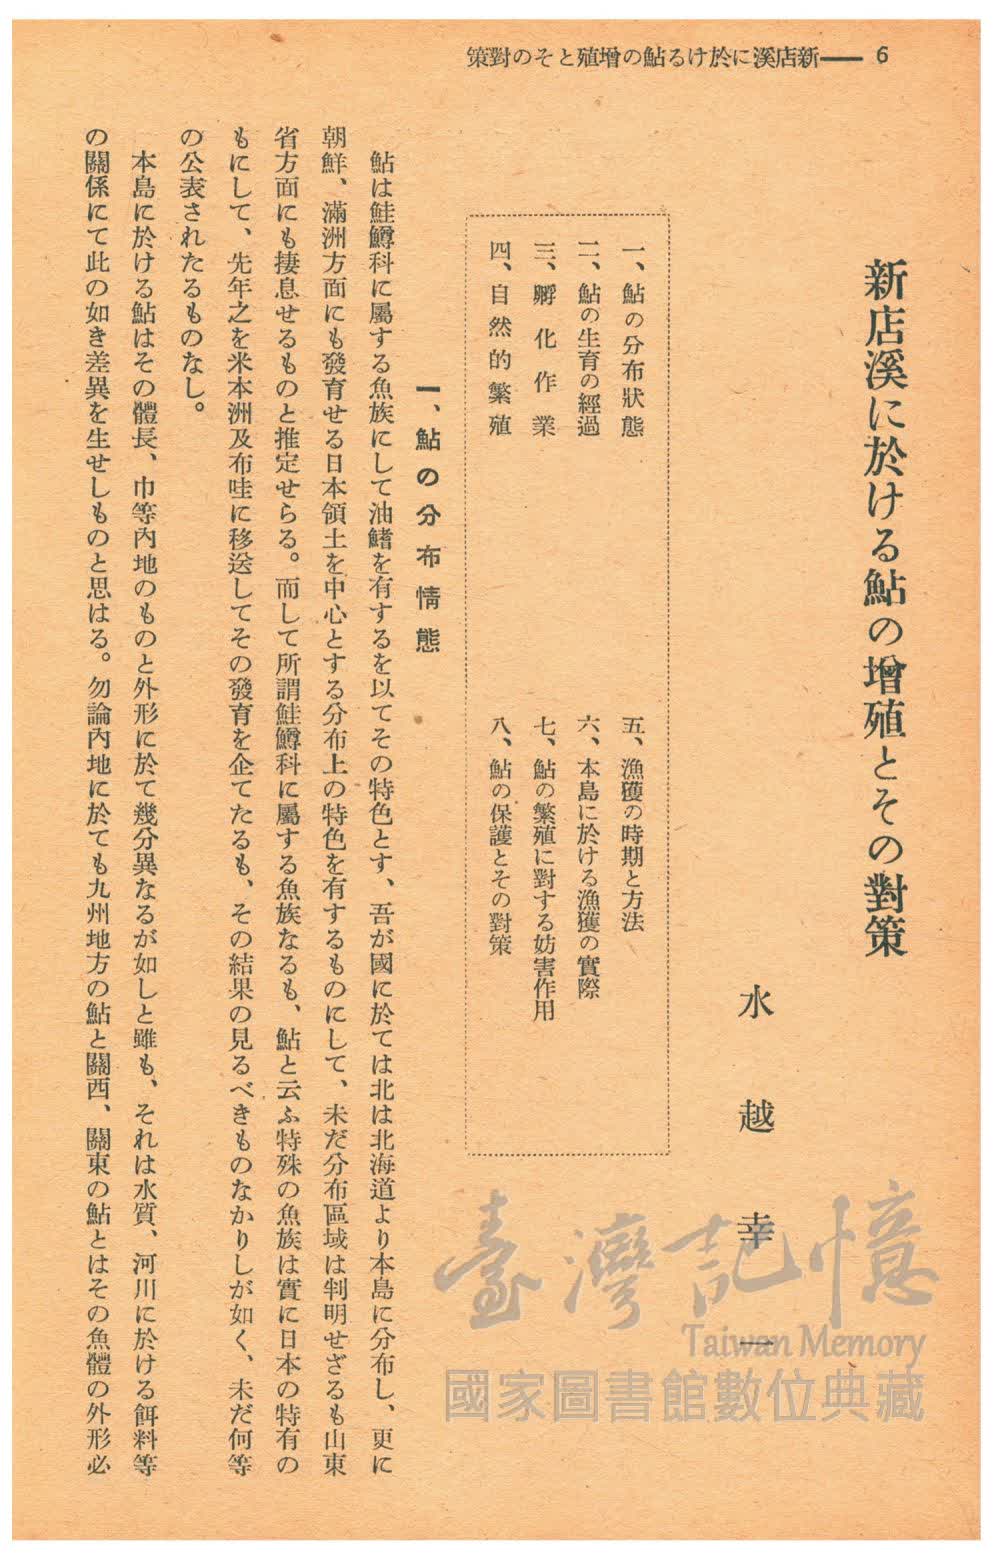 策對のそと殖增の鮎るけ於に溪店新━━ 6
新店溪に於ける鮎の增殖とその對策
水越幸一
一、鮎の分布狀態
二、鮎の生育の經過
三、孵化作業
四、自然的繁殖
五、漁獲の時期と方法
六、本島に於ける漁獲の實際
七、鮎の繁殖に對する妨害作用
八、鮎の保護とその對策
一、鮎の分布情態
鮎は鮭鱒科に屬する魚族にして油鰭を有するを以てその特色とす、吾が國に於ては北は北海道より本島に分布し、更に
朝鮮、滿洲方面にも發育せる日本領土を中心とする分布上の特色を有するものにして、未だ分布區域は判明せざるも山東
省方面にも捿息せるものと推定せらる。而して所謂鮭鱒科に屬する魚族なるも、鮎と云ふ特殊の魚族は實に日本の特有の
もにして、先年之を米本洲及布哇に移送してその發育を企てたるも、その結果の見るべきものなかりしが如く、未だ何等
の公表されたるものなし。
本島に於ける鮎はその體長、巾等內地のものと外形に於て幾分異なるが如しと雖も、それは水質、河川に於ける餌料等
の關係にて此の如き差異を生せしものと思はる。勿論內地に於ても九州地方の鮎と關西、關東の鮎とはその魚體の外形必
臺灣記憶
Taiwan Memory
國家圖書館數位典藏